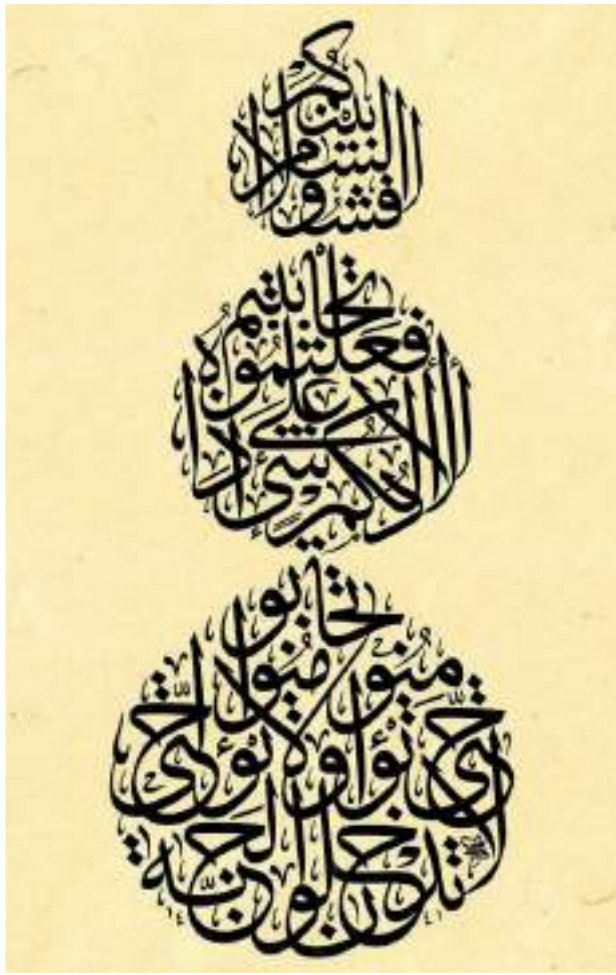 لا تدخلون الجنة
حتى تؤمنوا ولا تؤمنوا حتى
تحابوا
أولا أدلكم على شيء إذا
فعلتموه تحاببتم
أفشوا السلام بينكم